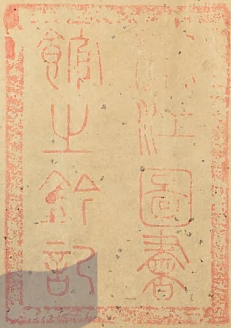 江圖書
館之鈐記